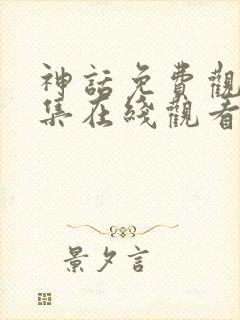 神話免費觀
集在綫觀看
景夕言